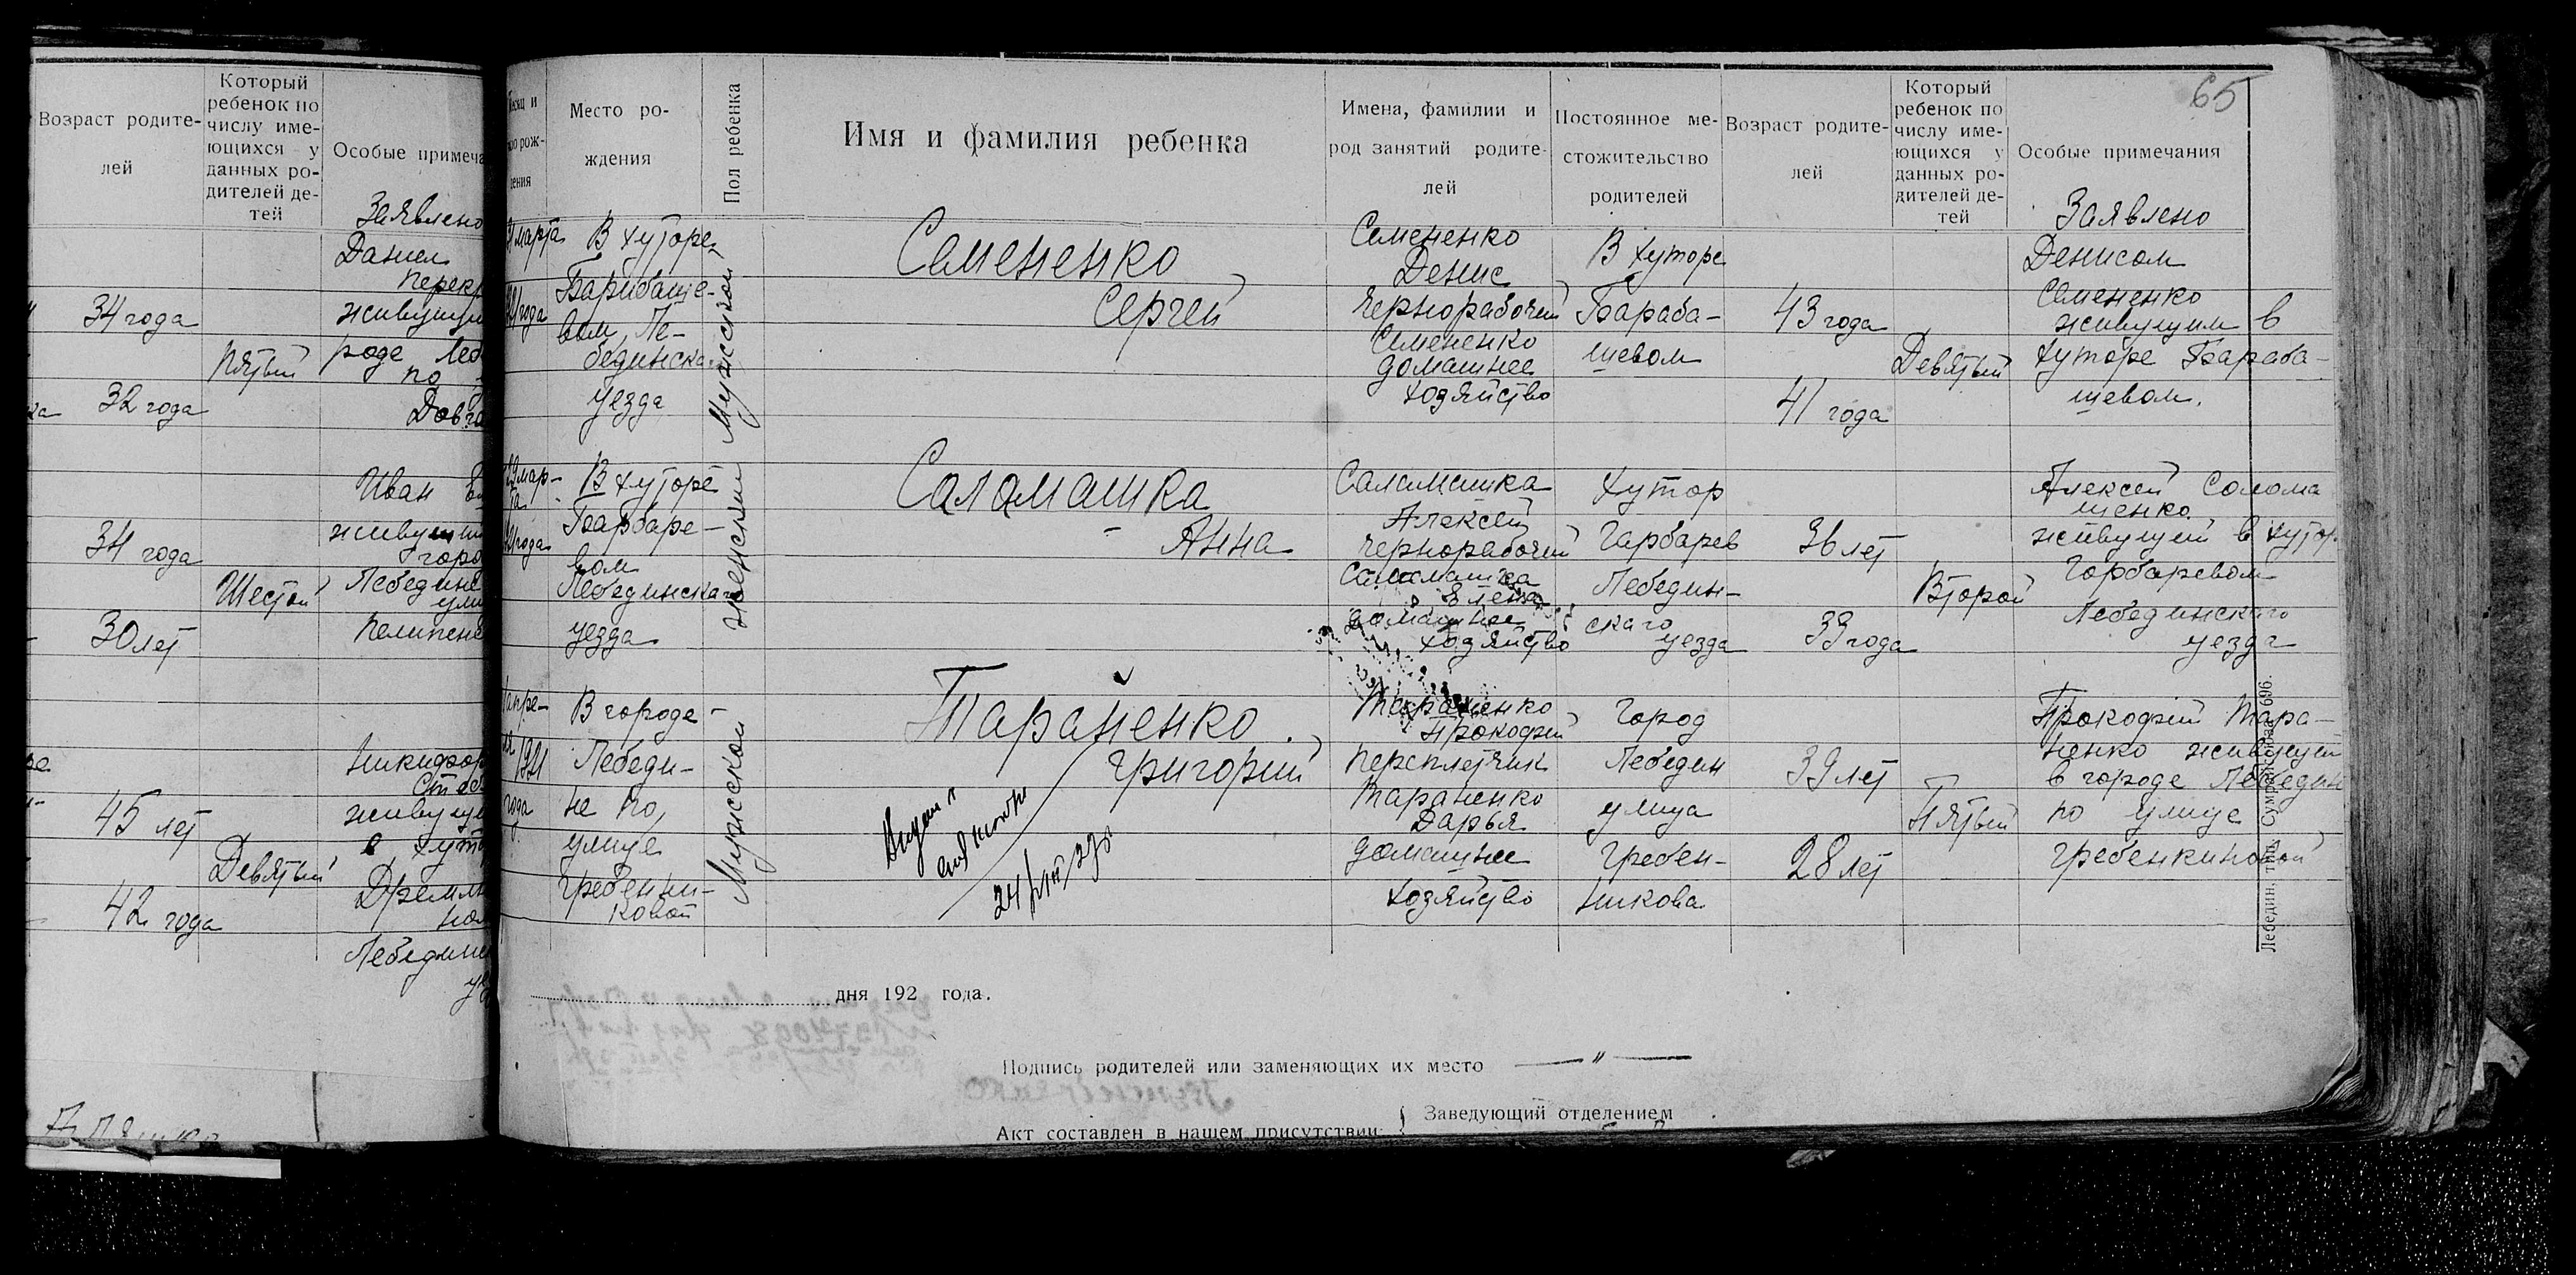 Возраст родите-
лей
Который
ребенок по
числу име-
ющихся у
данных ро-
дителей де-
тей
Особые примеча
Заявлено
Даниел
перекр
34 года
живущи
Пятый
роде Леб
по
32 года
Довга
Иван
живущи
34 года
горо
Шестой
Лебедине
ули
30 лет
Пелипенк
Никифор
Стеб
45 лет
живущи
в хут
Девятый
Дремлю
42 года
Лебедин
у
Месяц и
рож-
дения
Место ро-
ждения
Пол ребенка
Имя и фамилия ребенка
Имена, фамилии и
род занятий родите-
лей
Постоянное ме-
стожительство
родителей
Возраст родите-
лей
Который
ребенок по
числу име-
ющихся у
данных ро-
дителей де-
тей
Особые примечания
65
Заявлено
марта
21 года
В хуторе
Барабаше-
вом, Ле-
бединска
уезда
Мужской
Семененко
Сергей
Семененко
Денис
чернорабочий
Семененко
домашнее
хозяйство
В хуторе
Бараба-
шевом
43 года
41 года
Девятый
Денисом
Семененко
живущим в
хуторе Бараба-
шевом.
29 мар-
та
21 года
В хуторе
Барбаре-
вом
Лебединска
уезда
женский
Саламашка
Анна
Саламашка
Алексей
чернорабочий
Саламашка
Елена
домашнее
хозяйство
Хутор
Гарбарев
Лебедин-
скаго
уезда
36 лет
33 года
Второй
Алексей Солома
щенко
живущей в хутор.
Горбаревом
Лебединскаго
уезда
апре-
ля
1921
года
В городе
Лебеди-
не по
улице
Гребенни-
ковой
Мужской
Тараненко
Григорий
24/VIII 27г
Тараненко
Прокофий
переплетчик
Тараненко
Дарья
домашнее
хозяйство
Город
Лебедин
улица
Гребен-
никова
39 лет
28 лет
Пятый
Прокофий Тара-
ненко живущий
в городе Лебедин
по улице
Гребенкиновой
Лебедин. тип. Сумраксоюза 696.
дня 192 года.
Подпись родителей или заменяющих их место — " —
Заведующий отделением
Акт составлен в нашем присутствии: